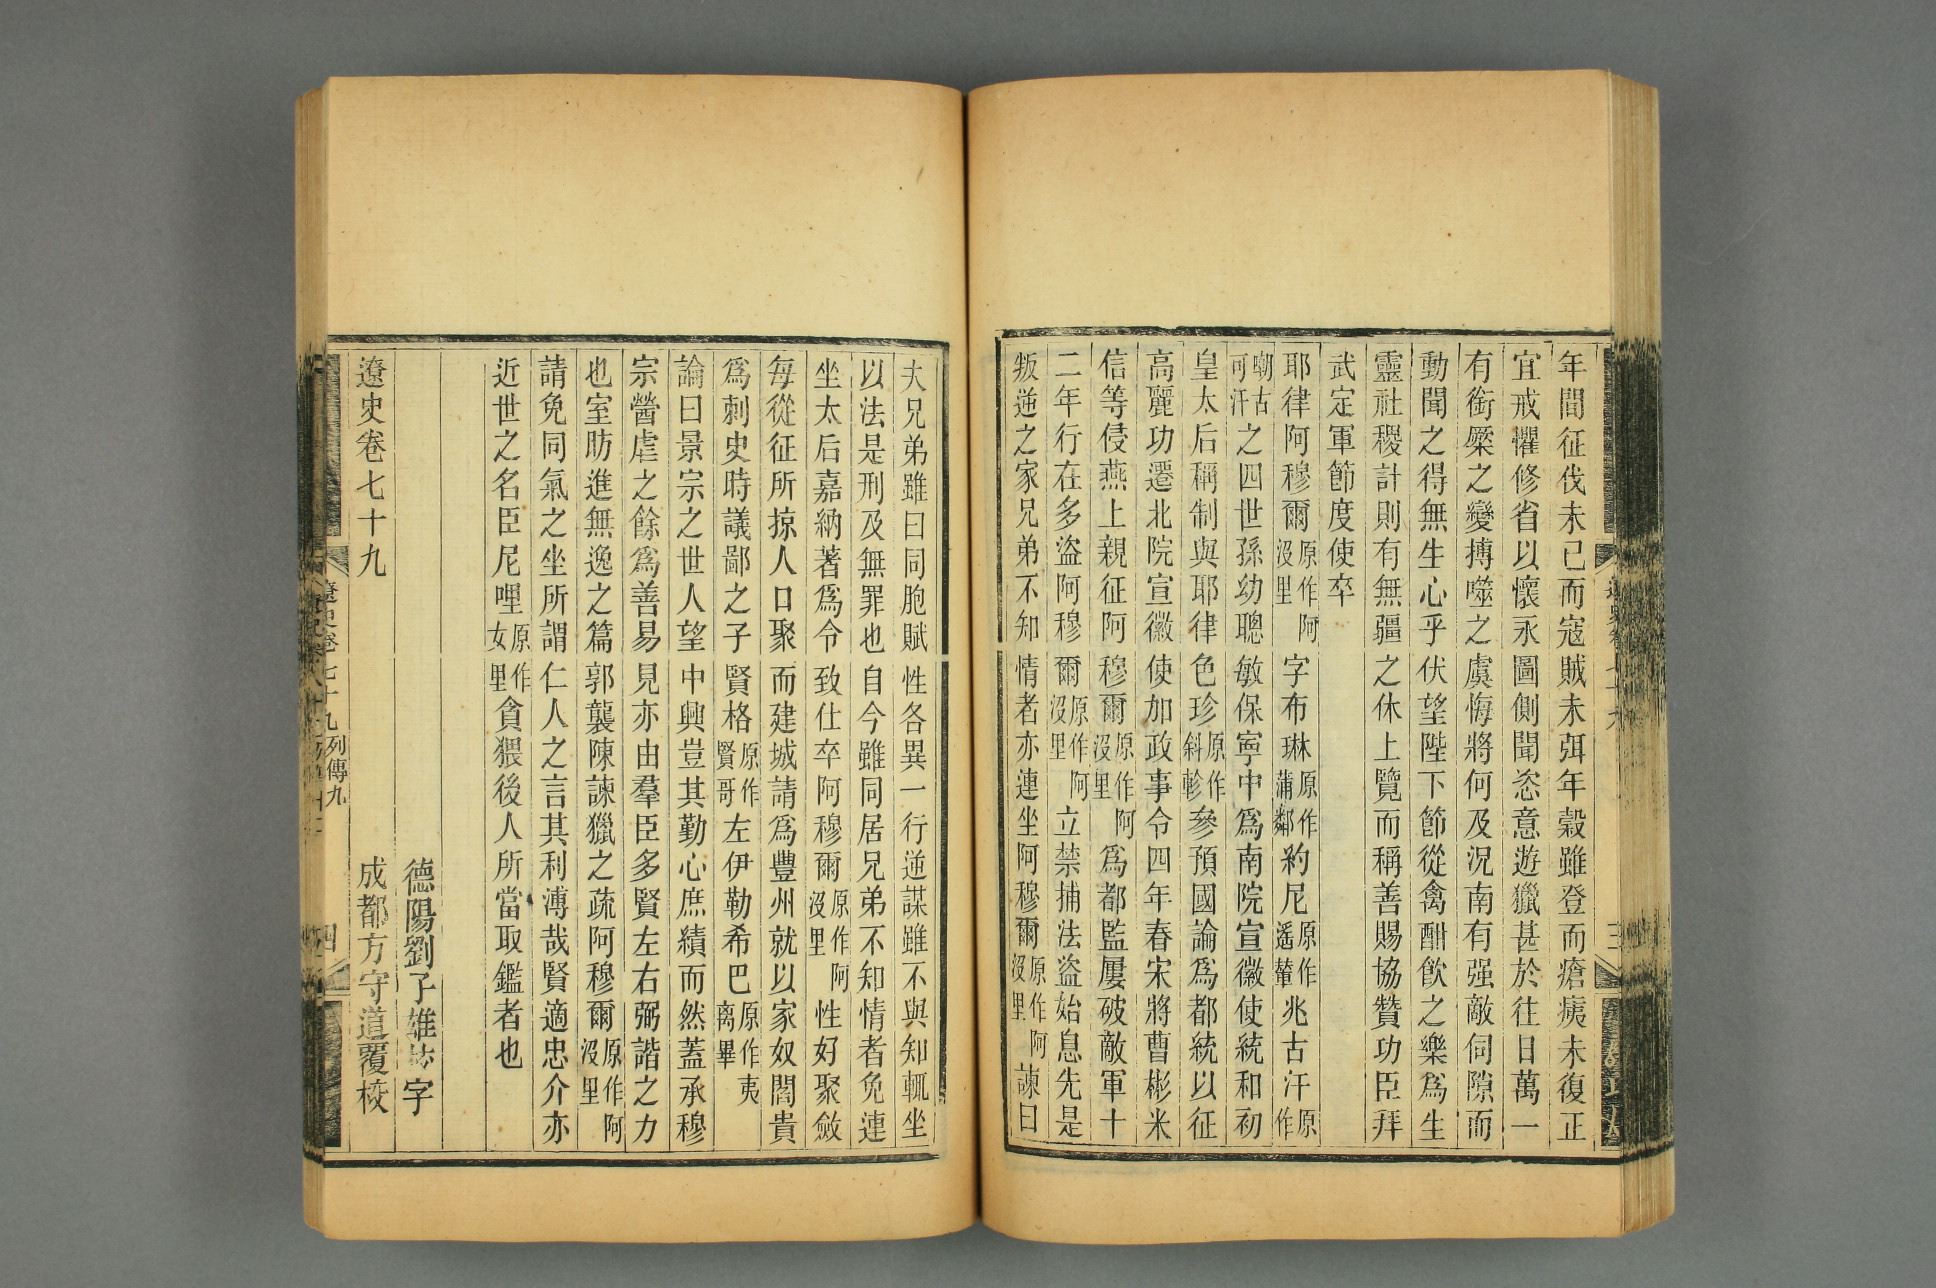 年間征伐未已而寇賊未弭年穀雖登而瘡痍未復正
宜戒懼修省以懷永圖側聞恣意遊獵甚於往日萬一
有銜橜之變搏噬之虞悔將何及況南有强敵伺隙而
動聞之得無生心乎伏望陛下節從禽酣飮之樂爲生
靈社稷計則有無疆之休上覽而稱善賜協贊功臣拜
武定軍節度使卒
耶律阿穆爾原作阿沒里字布琳原作蒲鄰約尼原作遥輦兆古汗原作
嘲古可汗之四世孫幼聰敏保寧中爲南院宣徽使統和初
皇太后稱制與耶律色珍原作斜軫參預國論爲都統以征
高麗功遷北院宣徽使加政事令四年春宋將曹彬米
信等侵燕上親征阿穆爾原作阿沒里爲都監屢破敵軍十
二年行在多盜阿穆爾原作阿沒里立禁捕法盜始息先是
叛逆之家兄弟不知情者亦連坐阿穆爾原作阿沒里諫曰
夫兄弟雖曰同胞賦性各異一行逆謀雖不與知輒坐
以法是刑及無罪也自今雖同居兄弟不知情者免連
坐太后嘉納著爲令致仕卒阿穆爾原作阿沒里性好聚斂
每從征所掠人口聚而建城請爲豐州就以家奴閻貴
爲刺史時議鄙之子賢格原作賢哥左伊勒希巴原作夷离畢
論曰景宗之世人望中興豈其勤心庶績而然蓋承穆
宗嘗虐之餘爲善易見亦由羣臣多賢左右弼諧之力
也室昉進無逸之篇郭襲陳諫獵之疏阿穆爾原作阿沒里
請免同氣之坐所謂仁人之言其利溥哉賢適忠介亦
近世之名臣尼哩原作女里貪猥後人所當取鑑者也
德陽劉子雄校字
遼史卷七十九
成都方守道覆校
遼史卷七十九列傳九
四
三